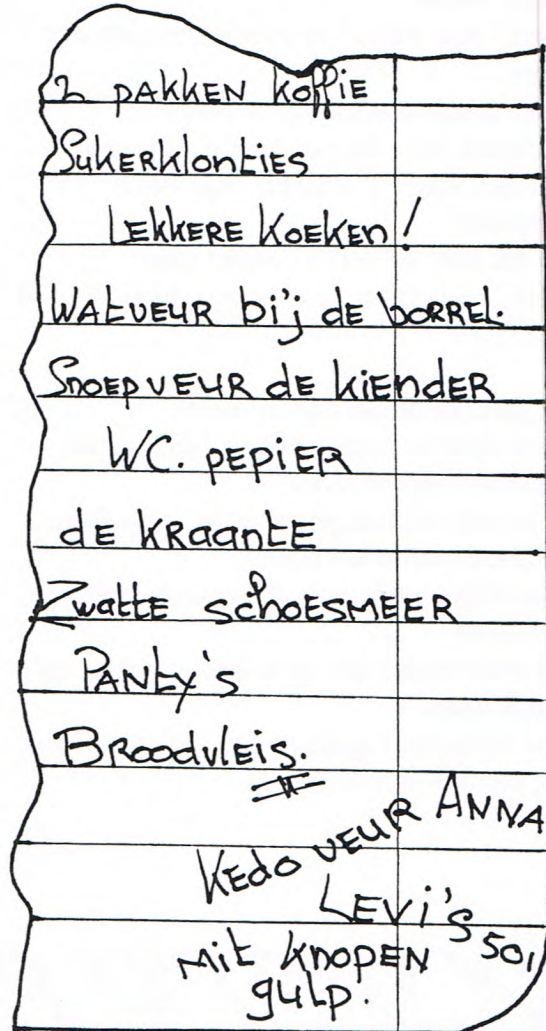 2 PAKKEN KOFFIE
Sukerklonties
LEKKERE KOEKEN!
WATVEUR bi'j DE BORREL.
Snoep VEUR DE KIENDER
WC. PEPIER
DE KRAANTE
Zwatte SCHOESMEER
PANTY'S
BROODVLEIS.
KEDO VEUR ANNA
LEVI'S 501
MIT KNOPEN
GULP.